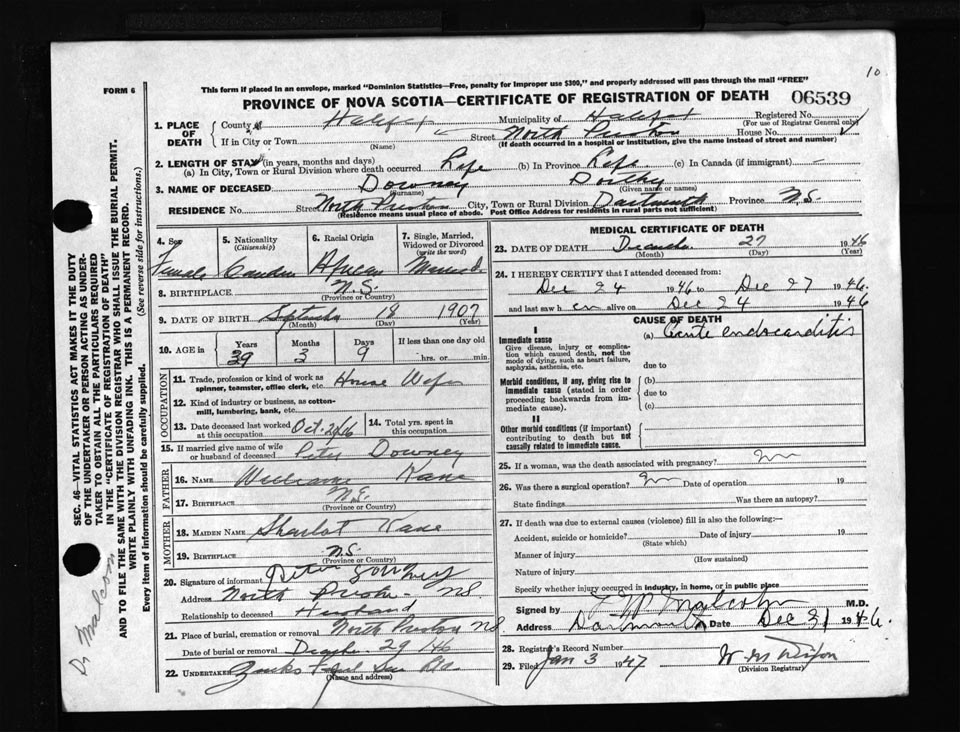 10
FORM 6
This form if placed in an envelope, marked "Dominion Statistics—Free, penalty for improper use $300," and properly addressed will pass through the mail "FREE"
PROVINCE OF NOVA SCOTIA—CERTIFICATE OF REGISTRATION OF DEATH 06539
1. PLACE OF DEATH
County of Halifax Municipality of Halifax Registered No.
(For use of Registrar General only)
If in City or Town Street North Preston House No.
(Name) (If death occurred in a hospital or institution, give the name instead of street and number)
2. LENGTH OF STAY (in years, months and days)
(a) In City, Town or Rural Division where death occurred Life (b) In Province Life (c) In Canada (if immigrant) —
3. NAME OF DECEASED Downey Dorthy
(Surname) (Given name or names)
RESIDENCE No. Street North Preston City, Town or Rural Division Dartmouth Province N.S.
(Residence means usual place of abode. Post Office Address for residents in rural parts not sufficient)
4. Sex Female
5. Nationality (Citizenship)
6. Racial Origin African
7. Single, Married, Widowed or Divorced (write the word) Married
8. BIRTHPLACE N.S.
(Province or Country)
9. DATE OF BIRTH 18 1907
(Month) (Day) (Year)
10. AGE in Years Months Days If less than one day old
39 3 9 hrs. or min.
OCCUPATION
11. Trade, profession or kind of work as spinner, teamster, office clerk, etc. House Wife
12. Kind of industry or business, as cotton-mill, lumbering, bank, etc.
13. Date deceased last worked at this occupation Oct.
14. Total yrs. spent in this occupation
15. If married give name of wife or husband of deceased Downey
FATHER
16. NAME William Kane
17. BIRTHPLACE N.S.
(Province or Country)
MOTHER
18. MAIDEN NAME Sharlot
19. BIRTHPLACE N.S.
(Province or Country)
20. Signature of informant Peter
Address North Preston N.S.
Relationship to deceased Husband
21. Place of burial, cremation or removal North Preston N.S.
Date of burial or removal 29
22. UNDERTAKER
(Name and address)
MEDICAL CERTIFICATE OF DEATH
23. DATE OF DEATH December 27 1946
(Month) (Day) (Year)
24. I HEREBY CERTIFY that I attended deceased from:
Dec 24 1946 to Dec 27 1946
and last saw h er alive on Dec 24 1946
CAUSE OF DEATH
I
Immediate cause
Give disease, injury or complication which caused death, not the mode of dying, such as heart failure, asphyxia, asthenia, etc.
(a) Acute endocarditis
due to
Morbid conditions, if any, giving rise to immediate cause (stated in order proceeding backwards from immediate cause)
(b)
due to
(c)
II
Other morbid conditions (if important) contributing to death but not causally related to immediate cause.
25. If a woman, was the death associated with pregnancy? No
26. Was there a surgical operation? No Date of operation 19
State findings Was there an autopsy?
27. If death was due to external causes (violence) fill in also the following:—
Accident, suicide or homicide? Date of injury 19
(State which)
Manner of injury
(How sustained)
Nature of injury
Specify whether injury occurred in industry, in home, or in public place
Signed by Malcolm M.D.
Address Dartmouth Date Dec 31 1946.
28. Registrar's Record Number
29. Filed Jan 3 1947
(Division Registrar)
SEC. 46—VITAL STATISTICS ACT MAKES IT THE DUTY
OF THE UNDERTAKER OR PERSON ACTING AS UNDER-
TAKER TO OBTAIN ALL THE PARTICULARS REQUIRED
IN THE "CERTIFICATE OF REGISTRATION OF DEATH"
AND TO FILE THE SAME WITH THE DIVISION REGISTRAR WHO SHALL ISSUE THE BURIAL PERMIT.
WRITE PLAINLY WITH UNFADING INK. THIS IS A PERMANENT RECORD.
Every item of information should be carefully supplied. (See reverse side for instructions.)
Dr Malcom